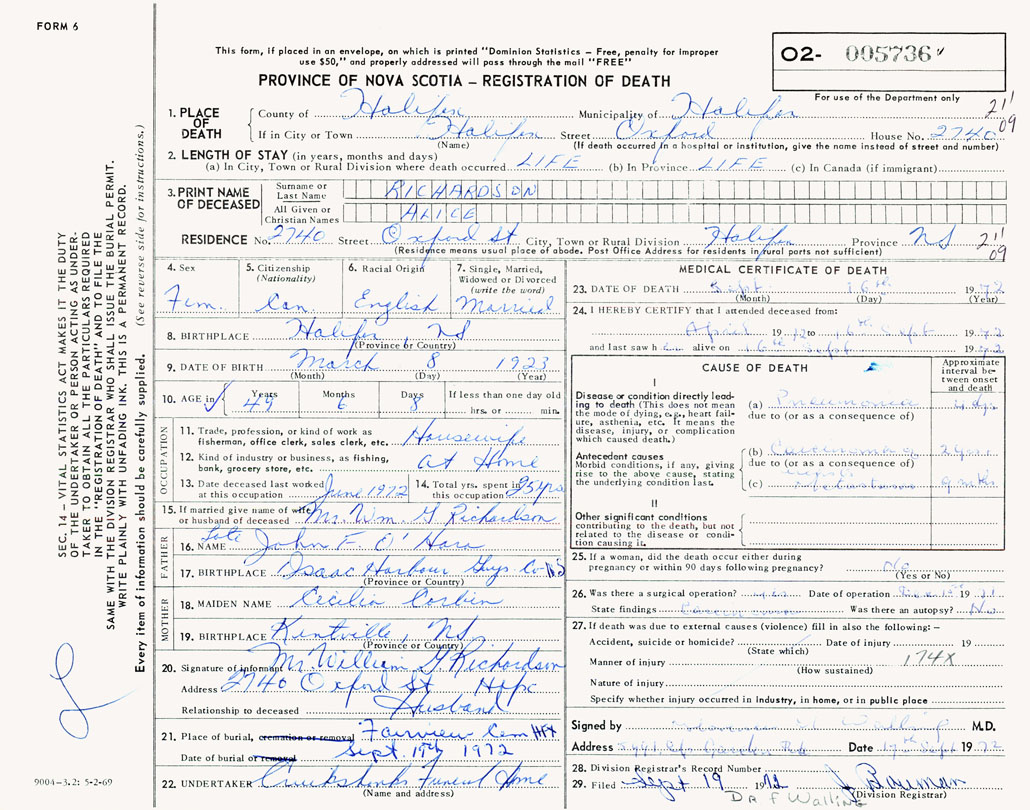 FORM 6
This form, if placed in an envelope, on which is printed "Dominion Statistics – Free, penalty for improper
use $50," and properly addressed will pass through the mail "FREE"
PROVINCE OF NOVA SCOTIA – REGISTRATION OF DEATH
O2- 005736
For use of the Department only
211
09
1. PLACE OF DEATH
County of Halifax Municipality of Halifax
If in City or Town Halifax Street Oxford House No. 2740
(Name) (If death occurred in a hospital or institution, give the name instead of street and number)
2. LENGTH OF STAY (in years, months and days)
(a) In City, Town or Rural Division where death occurred LIFE (b) In Province LIFE (c) In Canada (if immigrant)
3. PRINT NAME OF DECEASED
Surname or Last Name RICHARDSON
All Given or Christian Names ALICE
RESIDENCE No. 2740 Street Oxford St City, Town or Rural Division Halifax Province NS 211
09
(Residence means usual place of abode. Post Office Address for residents in rural ports not sufficient)
4. Sex Fem.
5. Citizenship (Nationality) Can.
6. Racial Origin English
7. Single, Married, Widowed or Divorced (write the word) Married
8. BIRTHPLACE Halifax, NS
(Province or Country)
9. DATE OF BIRTH March 8 1923
(Month) (Day) (Year)
10. AGE in Years 49 Months 6 Days 8 If less than one day old
hrs. or min.
OCCUPATION
11. Trade, profession, or kind of work as
fisherman, office clerk, sales clerk, etc. Housewife
12. Kind of industry or business, as fishing,
bank, grocery store, etc. at Home
13. Date deceased last worked at this occupation June 1972
14. Total yrs. spent in this occupation 25 yrs
15. If married give name of wife
or husband of deceased Mr. Wm. G Richardson
FATHER
16. NAME Late John F. O'Hara
17. BIRTHPLACE Isaac Harbour Guys. Co NS
(Province or Country)
MOTHER
18. MAIDEN NAME Cecilia Corbin
19. BIRTHPLACE Kentville, NS
(Province or Country)
20. Signature of informant Mr William G Richardson
Address 2740 Oxford St Hfx
Relationship to deceased Husband
21. Place of burial, cremation or removal Fairview Cem HFX
Date of burial or removal Sept. 19th 1972
22. UNDERTAKER Cruikshanks Funeral Home
(Name and address)
MEDICAL CERTIFICATE OF DEATH
23. DATE OF DEATH Sept 16th 1972
(Month) (Day) (Year)
24. I HEREBY CERTIFY that I attended deceased from:
April 19 to 16th Sept 1972
and last saw h alive on 16th Sept 1972
CAUSE OF DEATH
Approximate interval between onset and death
I
Disease or condition directly leading to death (This does not mean the mode of dying, e.g., heart failure, asthenia, etc. It means the disease, injury, or complication which caused death.)
(a) Pneumonia 4 dys
due to (or as a consequence of)
Antecedent causes
Morbid conditions, if any, giving rise to the above cause, stating the underlying condition last.
(b) Carcinoma 2 yrs
due to (or as a consequence of)
(c) 9 mths
II
Other significant conditions
contributing to the death, but not related to the disease or condition causing it.
25. If a woman, did the death occur either during
pregnancy or within 90 days following pregnancy? No
(Yes or No)
26. Was there a surgical operation? yes Date of operation 1971
State findings Carcinoma Was there an autopsy? No
27. If death was due to external causes (violence) fill in also the following: –
Accident, suicide or homicide? Date of injury 19
(State which)
Manner of injury 174X
(How sustained)
Nature of injury
Specify whether injury occurred in industry, in home, or in public place
Signed by M.D.
Address Date 17th Sept 1972
28. Division Registrar's Record Number
29. Filed Sept 19 1972
(Division Registrar)
DR F Walling
SEC. 14 – VITAL STATISTICS ACT MAKES IT THE DUTY
OF THE UNDERTAKER OR PERSON ACTING AS UNDER-
TAKER TO OBTAIN ALL THE PARTICULARS REQUIRED
IN THE "REGISTRATION OF DEATH" AND TO FILE THE
SAME WITH THE DIVISION REGISTRAR WHO SHALL ISSUE THE BURIAL PERMIT.
WRITE PLAINLY WITH UNFADING INK. THIS IS A PERMANENT RECORD.
Every item of information should be carefully supplied. (See reverse side for instructions.)
9004-3.2: 5-2-69